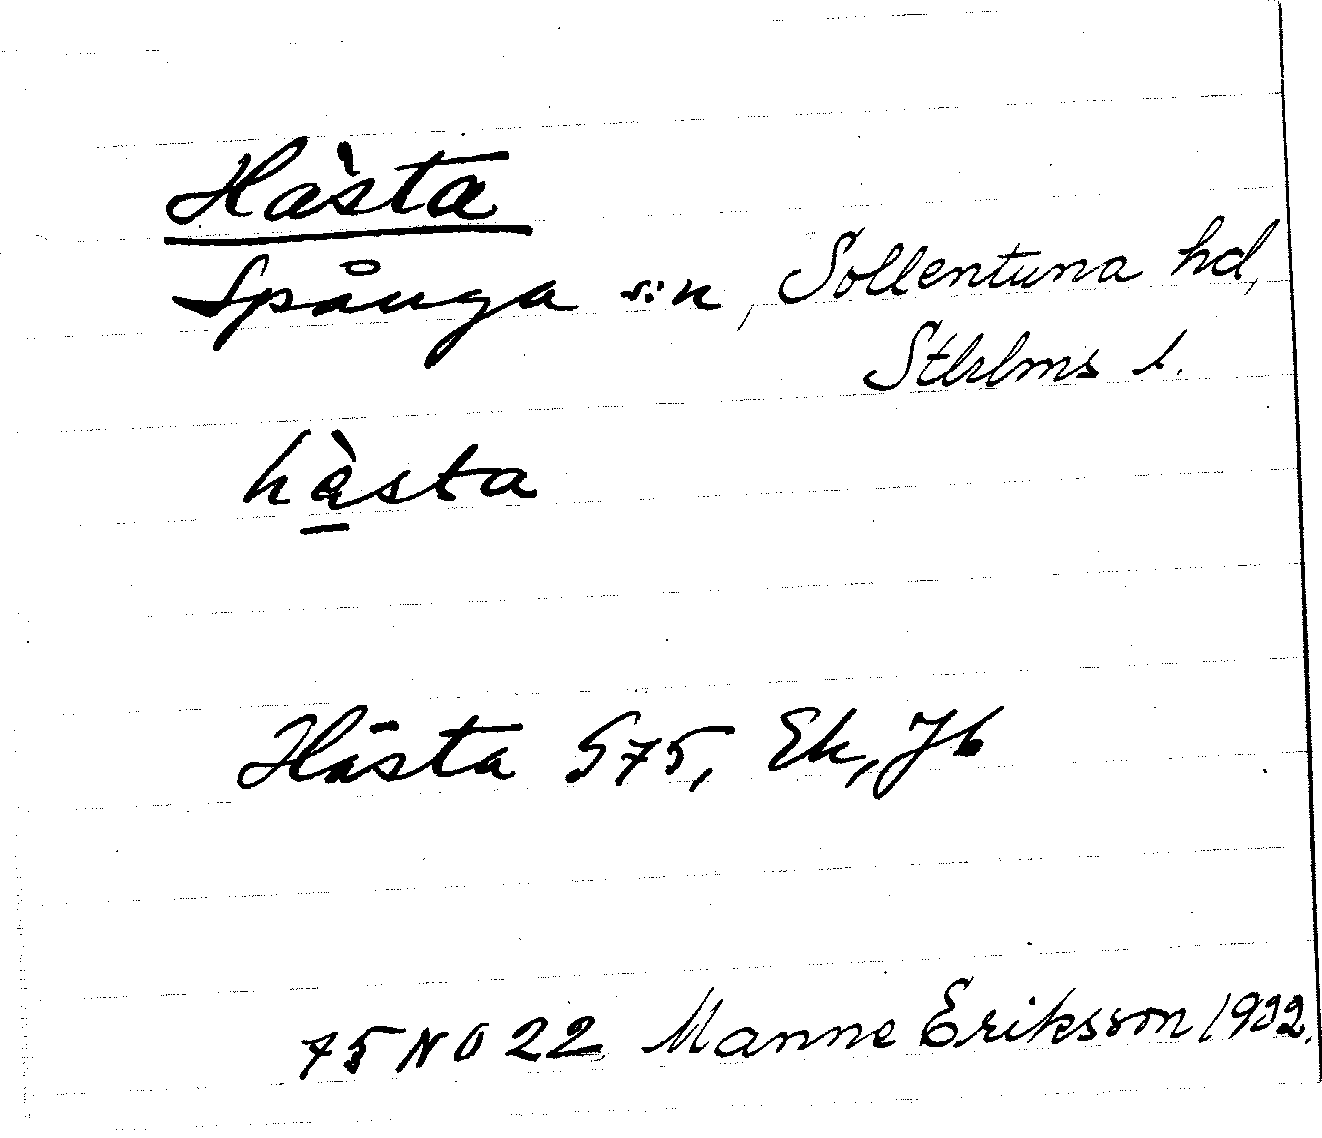 Hästa
Spånga s:n, Sollentuna hd,
Stklms l.
hà̱sta
Hästa G75, Ek, Jb
75 NO 22 Manne Eriksson 1932.